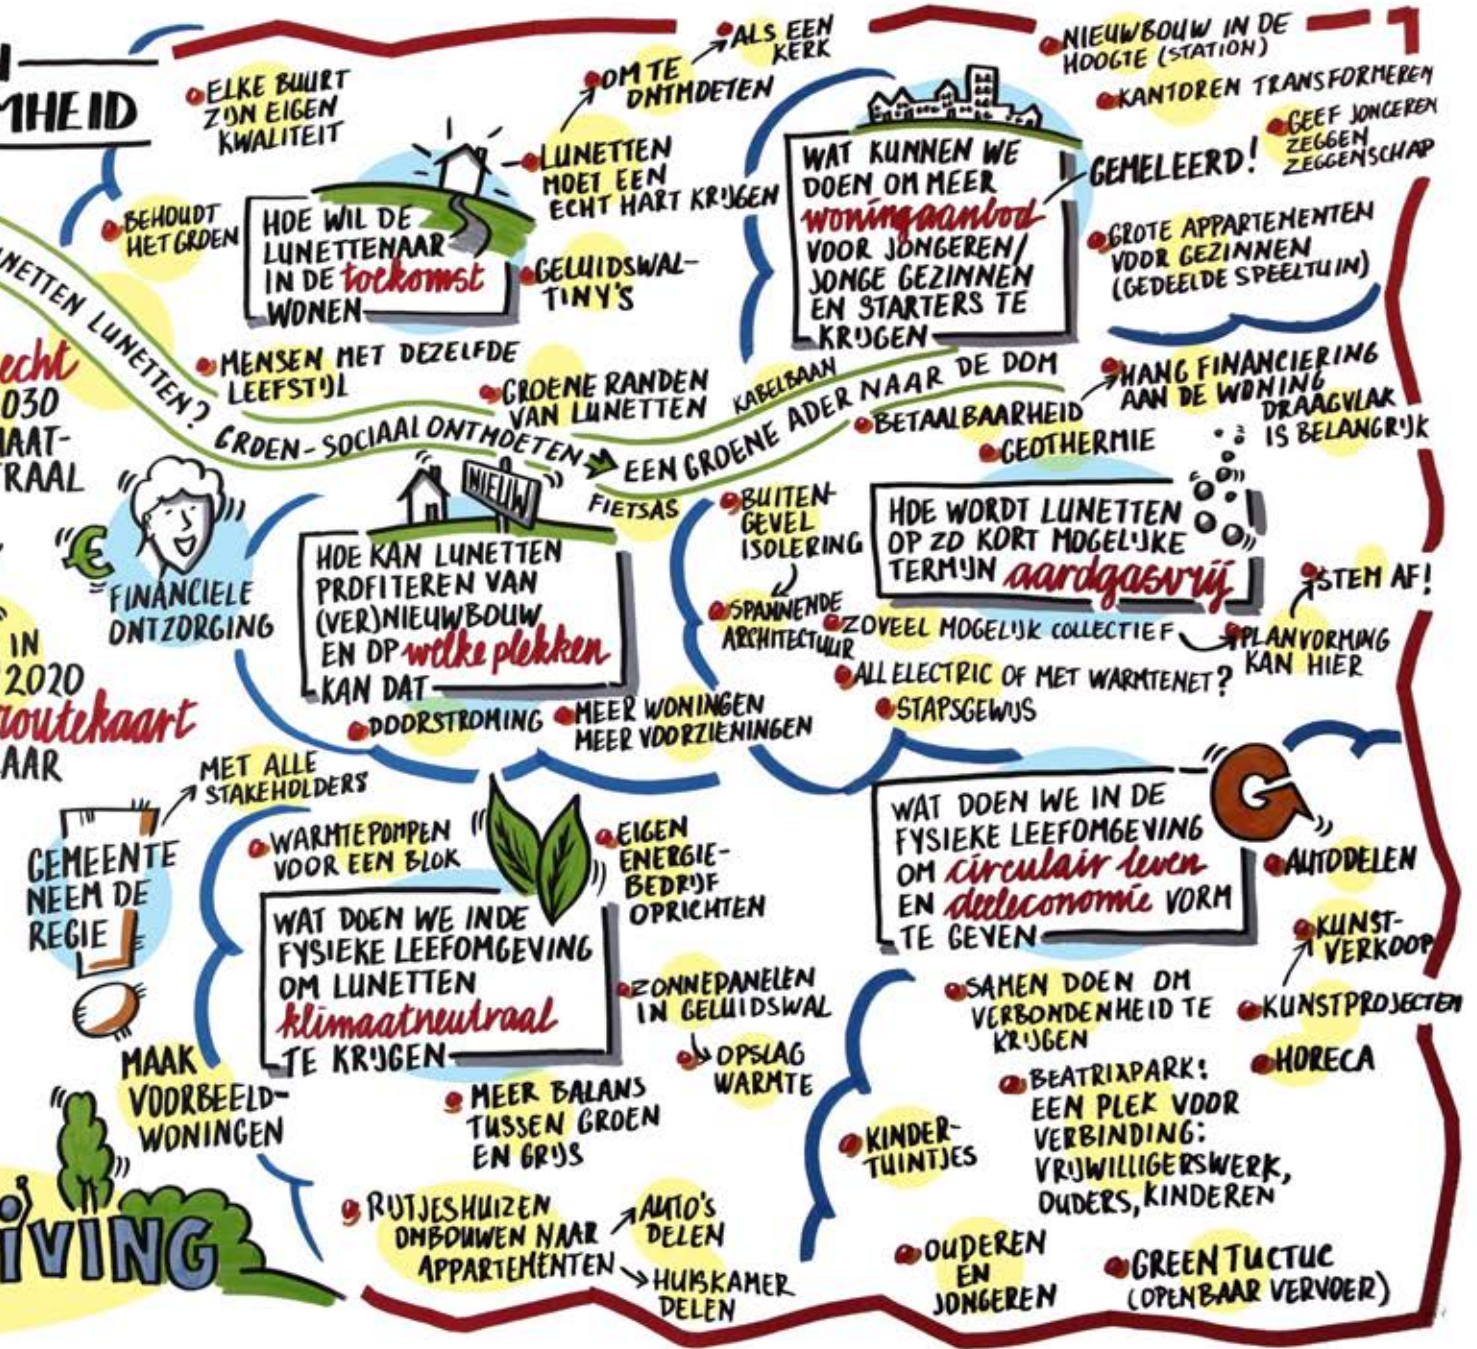 MHEID
ELKE BUURT
ZIJN EIGEN
KWALITEIT
BEHOUDT
HET GROEN
HOE WIL DE
LUNETTENAAR
IN DE toekomst
WONEN
OM TE
ONTMOETEN
ALS EEN
KERK
LUNETTEN
MOET EEN
ECHT HART KRIJGEN
GELUIDSWAL-
TINY'S
MENSEN MET DEZELFDE
LEEFSTIJL
GROENE RANDEN
VAN LUNETTEN
WAT KUNNEN WE
DOEN OM MEER
woningaanbod
VOOR JONGEREN/
JONGE GEZINNEN
EN STARTERS TE
KRIJGEN
NIEUWBOUW IN DE
HOOGTE (STATION)
KANTOREN TRANSFORMEREN
GEEF JONGEREN
ZEGGEN
ZEGGENSCHAP
GEMELEERD!
GROTE APPARTEMENTEN
VOOR GEZINNEN
(GEDEELDE SPEELTUIN)
NETTEN LUNETTEN?
GROEN-SOCIAAL ONTMOETEN
EEN GROENE ADER NAAR DE DOM
KABELBAAN
FIETSAS
echt
030
MAAT-
RAAL
€
FINANCIELE
ONTZORGING
IN
2020
routekaart
AAR
NIEUW
HOE KAN LUNETTEN
PROFITEREN VAN
(VER)NIEUWBOUW
EN OP welke plekken
KAN DAT
DOORSTROMING
MEER WONINGEN
MEER VOORZIENINGEN
BETAALBAARHEID
HANG FINANCIERING
AAN DE WONING
DRAAGVLAK
IS BELANGRIJK
GEOTHERMIE
BUITEN-
GEVEL
ISOLERING
SPANNENDE
ARCHITECTUUR
HOE WORDT LUNETTEN
OP ZO KORT MOGELIJKE
TERMIJN aardgasvrij
ZOVEEL MOGELIJK COLLECTIEF
PLANVORMING
KAN HIER
STEM AF!
ALL ELECTRIC OF MET WARMTENET?
STAPSGEWIJS
MET ALLE
STAKEHOLDERS
GEMEENTE
NEEM DE
REGIE
MAAK
VOORBEELD-
WONINGEN
IVING
WARMTEPOMPEN
VOOR EEN BLOK
EIGEN
ENERGIE-
BEDRIJF
OPRICHTEN
WAT DOEN WE IN DE
FYSIEKE LEEFOMGEVING
OM LUNETTEN
klimaatneutraal
TE KRIJGEN
ZONNEPANELEN
IN GELUIDSWAL
OPSLAG
WARMTE
MEER BALANS
TUSSEN GROEN
EN GRIJS
RIJTJESHUIZEN
OMBOUWEN NAAR
APPARTEMENTEN
AUTO'S
DELEN
HUISKAMER
DELEN
WAT DOEN WE IN DE
FYSIEKE LEEFOMGEVING
OM circulair leven
EN deeleconomie VORM
TE GEVEN
AUTODELEN
KUNST-
VERKOOP
KUNSTPROJECTEN
HORECA
SAMEN DOEN OM
VERBONDENHEID TE
KRIJGEN
BEATRIXPARK:
EEN PLEK VOOR
VERBINDING:
VRIJWILLIGERSWERK,
OUDERS, KINDEREN
KINDER-
TUINTJES
OUDEREN
EN
JONGEREN
GREEN TUCTUC
(OPENBAAR VERVOER)